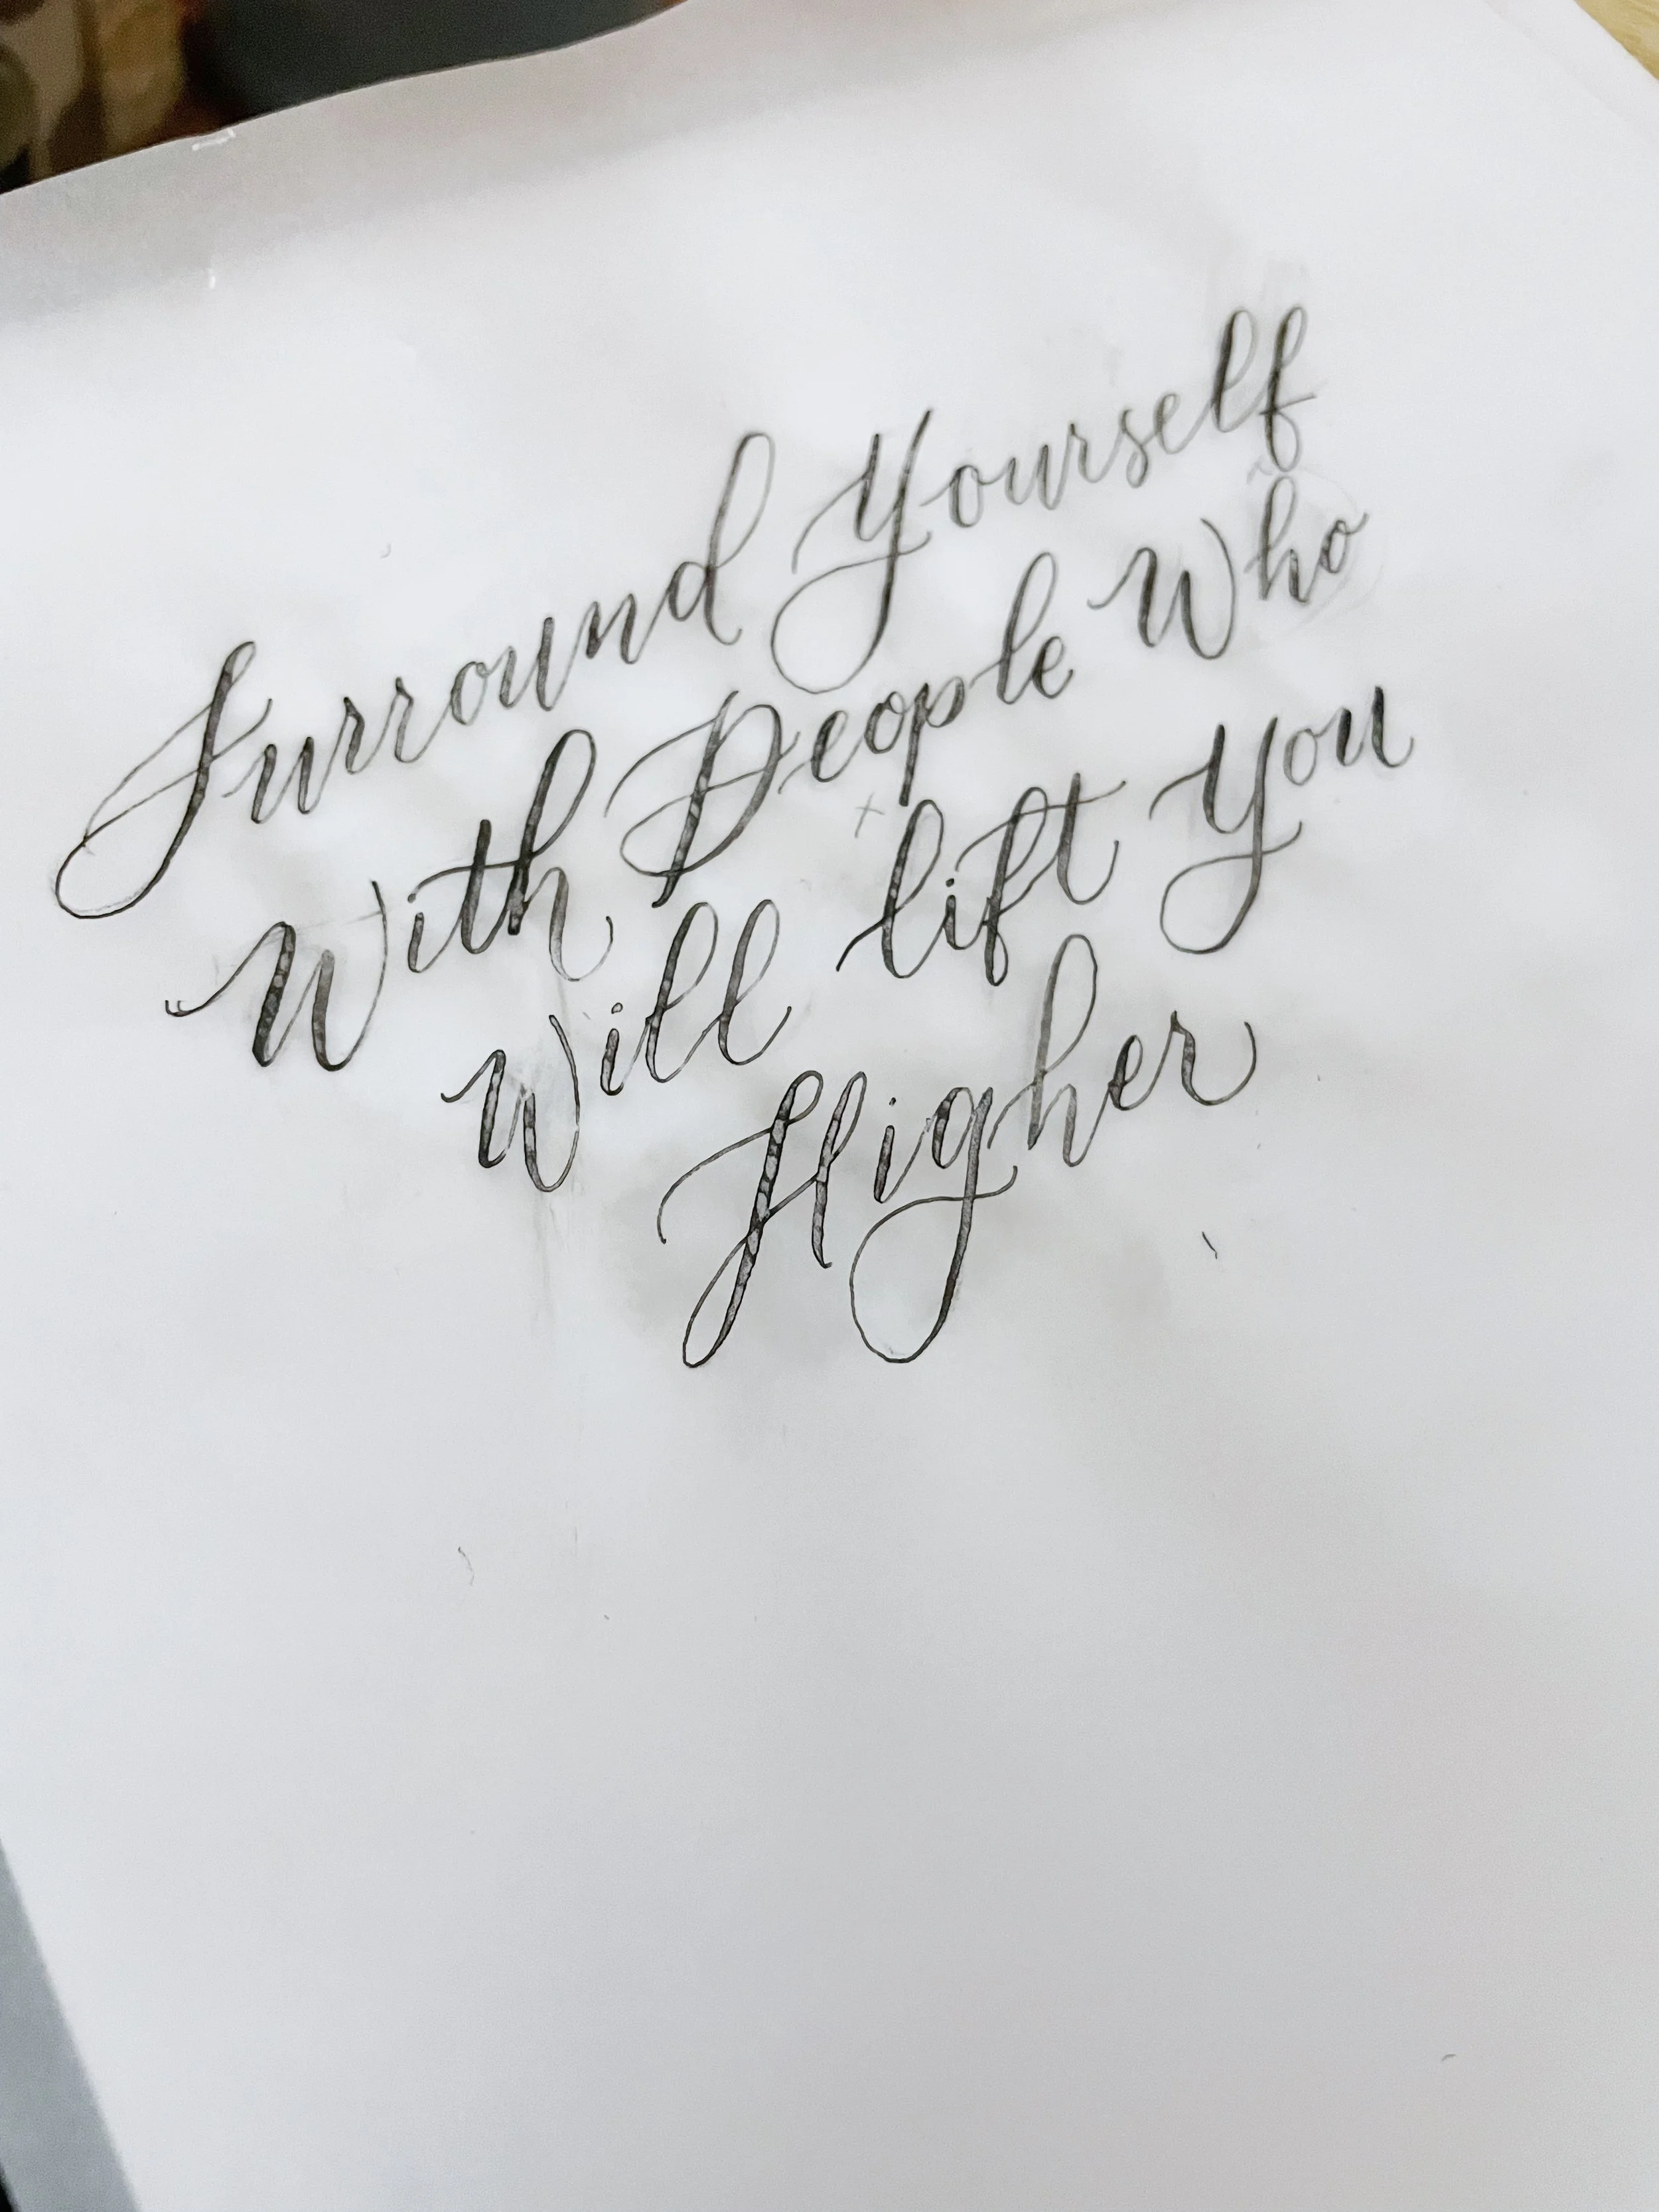 Surround Yourself
With People Who
Will lift You
Higher